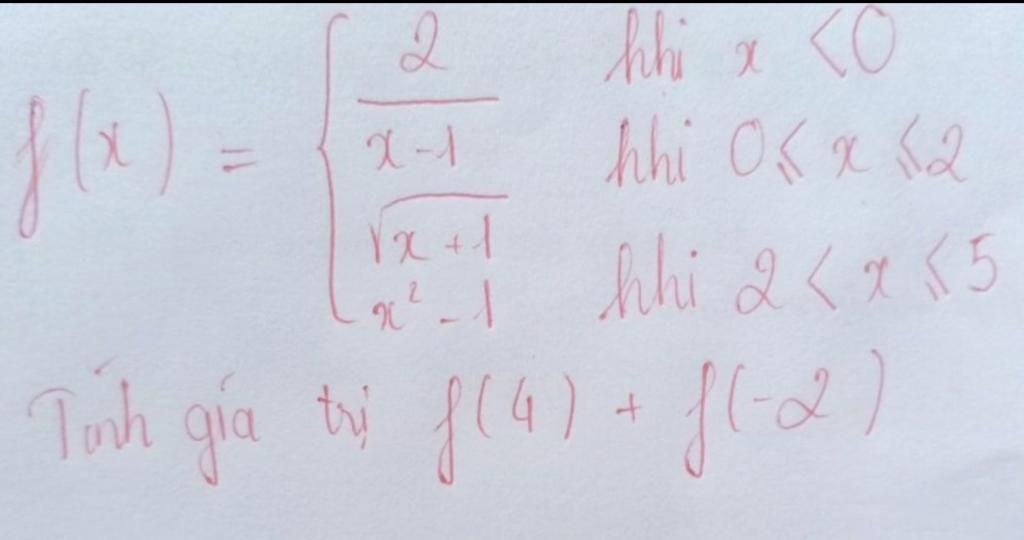 f(x) = { 2/(x-1) khi x < 0
√(x+1) khi 0 ≤ x ≤ 2
x² - 1 khi 2 < x ≤ 5
Tính gía trị f(4) + f(-2)